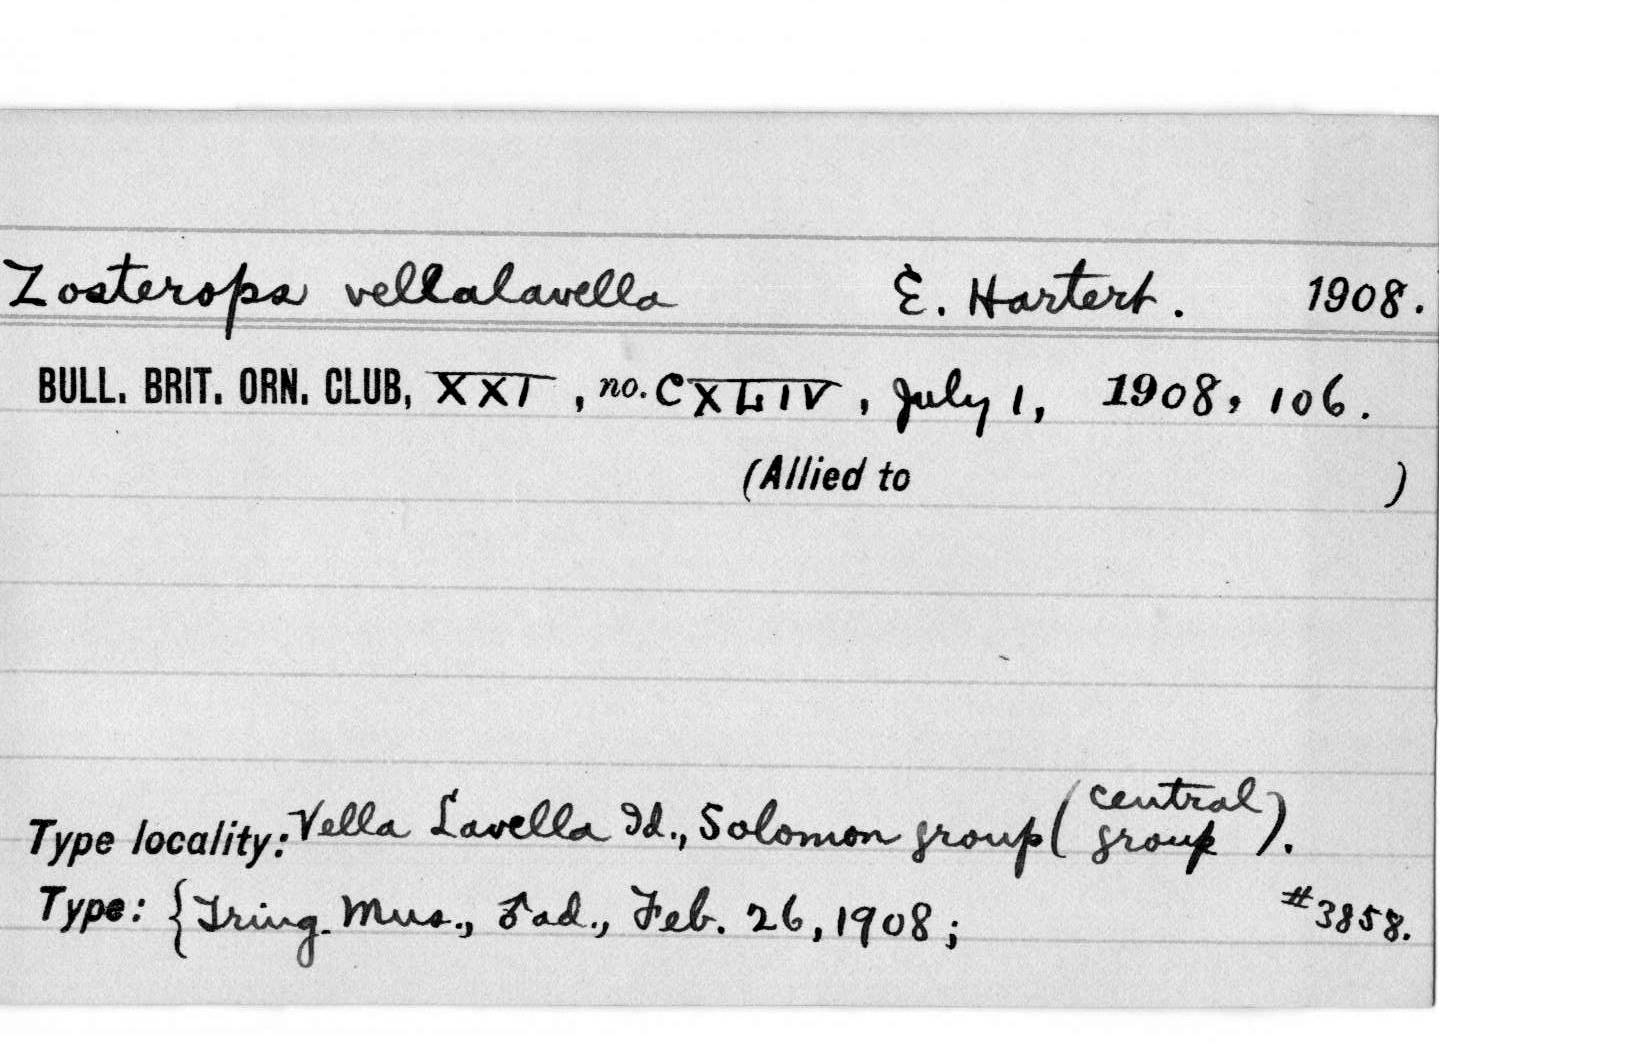 Zosterops vellalavella E. Hartert. 1908.
BULL. BRIT. ORN. CLUB, XXI, no. CXLIV, July 1, 1908, 106.
(Allied to )
Type locality: Vella Lavella Id., Solomon group (central group).
Type: {Tring Mus., ♂ ad., Feb. 26, 1908; #3858.